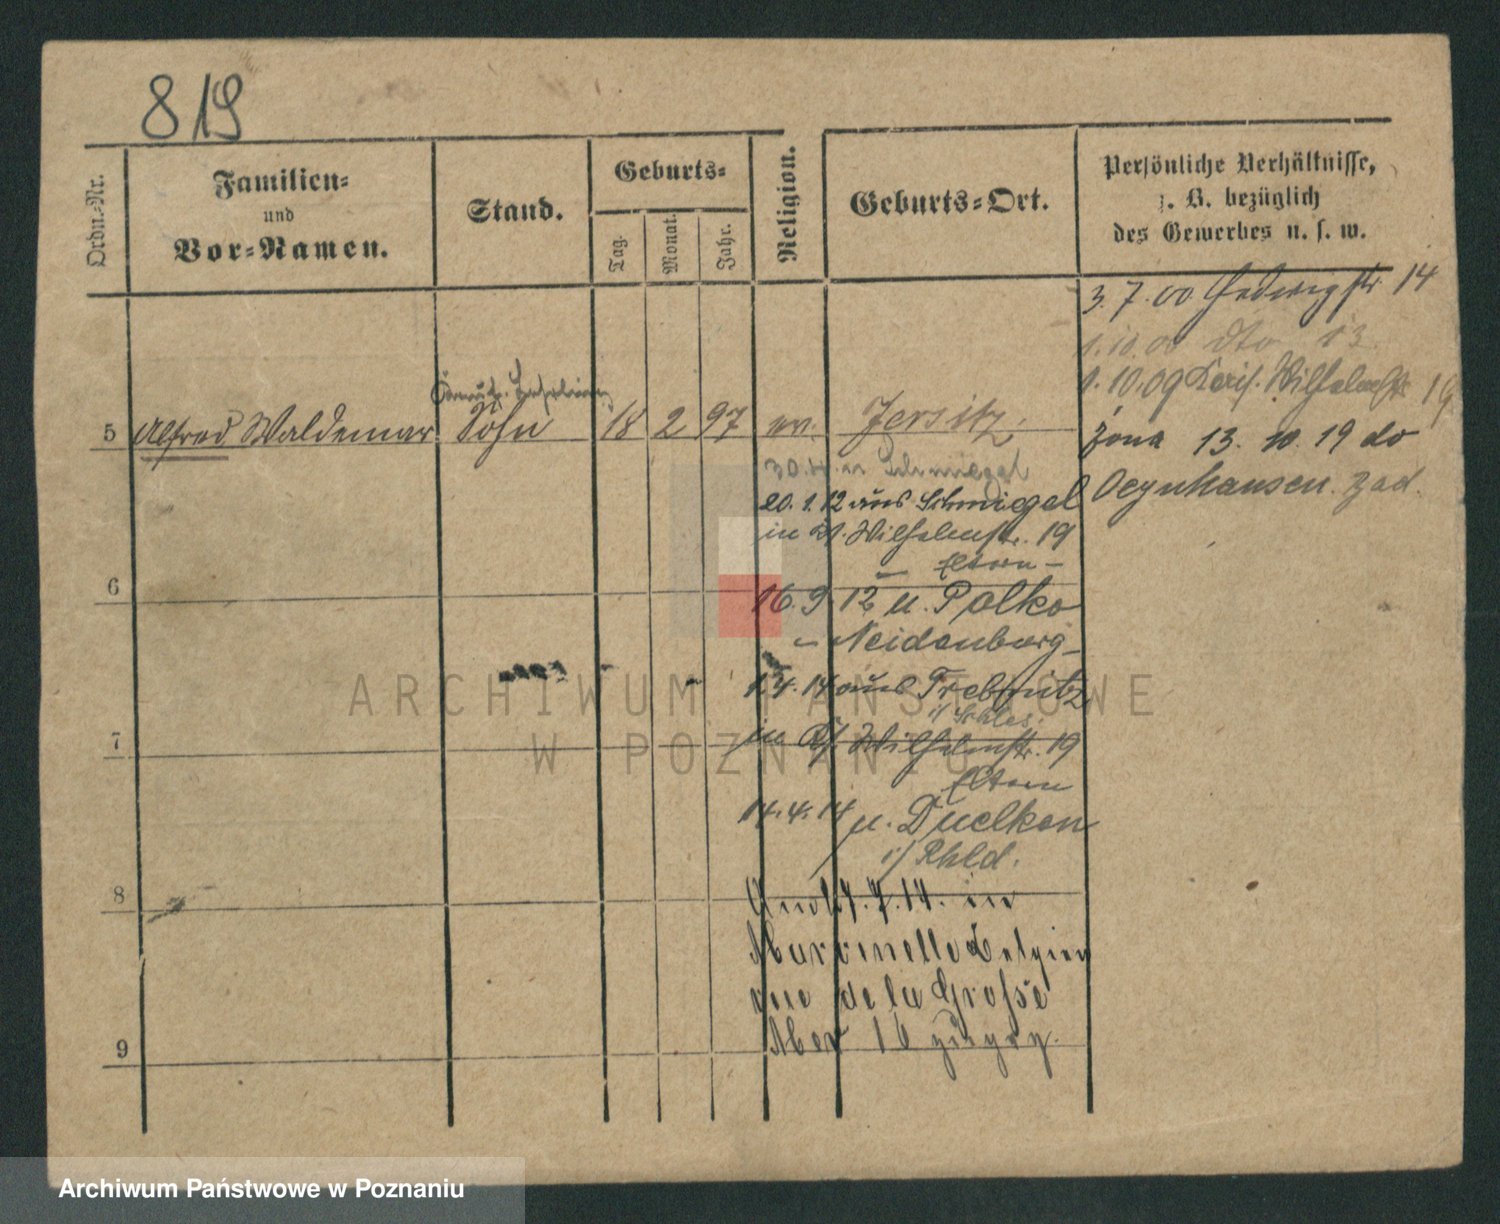 819
Ordn.-Nr.
Familien-
und
Vor-Namen.
Stand.
Geburts-
Tag.
Monat.
Jahr.
Religion.
Geburts-Ort.
Persönliche Verhältnisse,
z. B. bezüglich
des Gewerbes u. s. w.
3.7.00 Hedwigstr 14
1.10.00 dto 13
1.10.09 Wilhelmstr 19
5 Alfred Waldemar Sohn 18 2 97 ev. Jersitz.
żona 13. 10. 19 do
Oeynhausen zad.
Schmiegel
20.1.12 aus Schmiegel
in Wilhelmstr. 19
Eltern –
6
16.9.12 u. Polko
– Neidenburg –
1.4.14 aus Trebnitz
i/ Schles.
7
in Wilhelmstr. 19
Eltern
14.4.14 u. Duelken
i/ Rhld.
8
7.14. in
Marcinelle Belgien
rue de la Grosse
16
9
ARCHIWUM PAŃSTWOWE
W POZNANIU
Archiwum Państwowe w Poznaniu